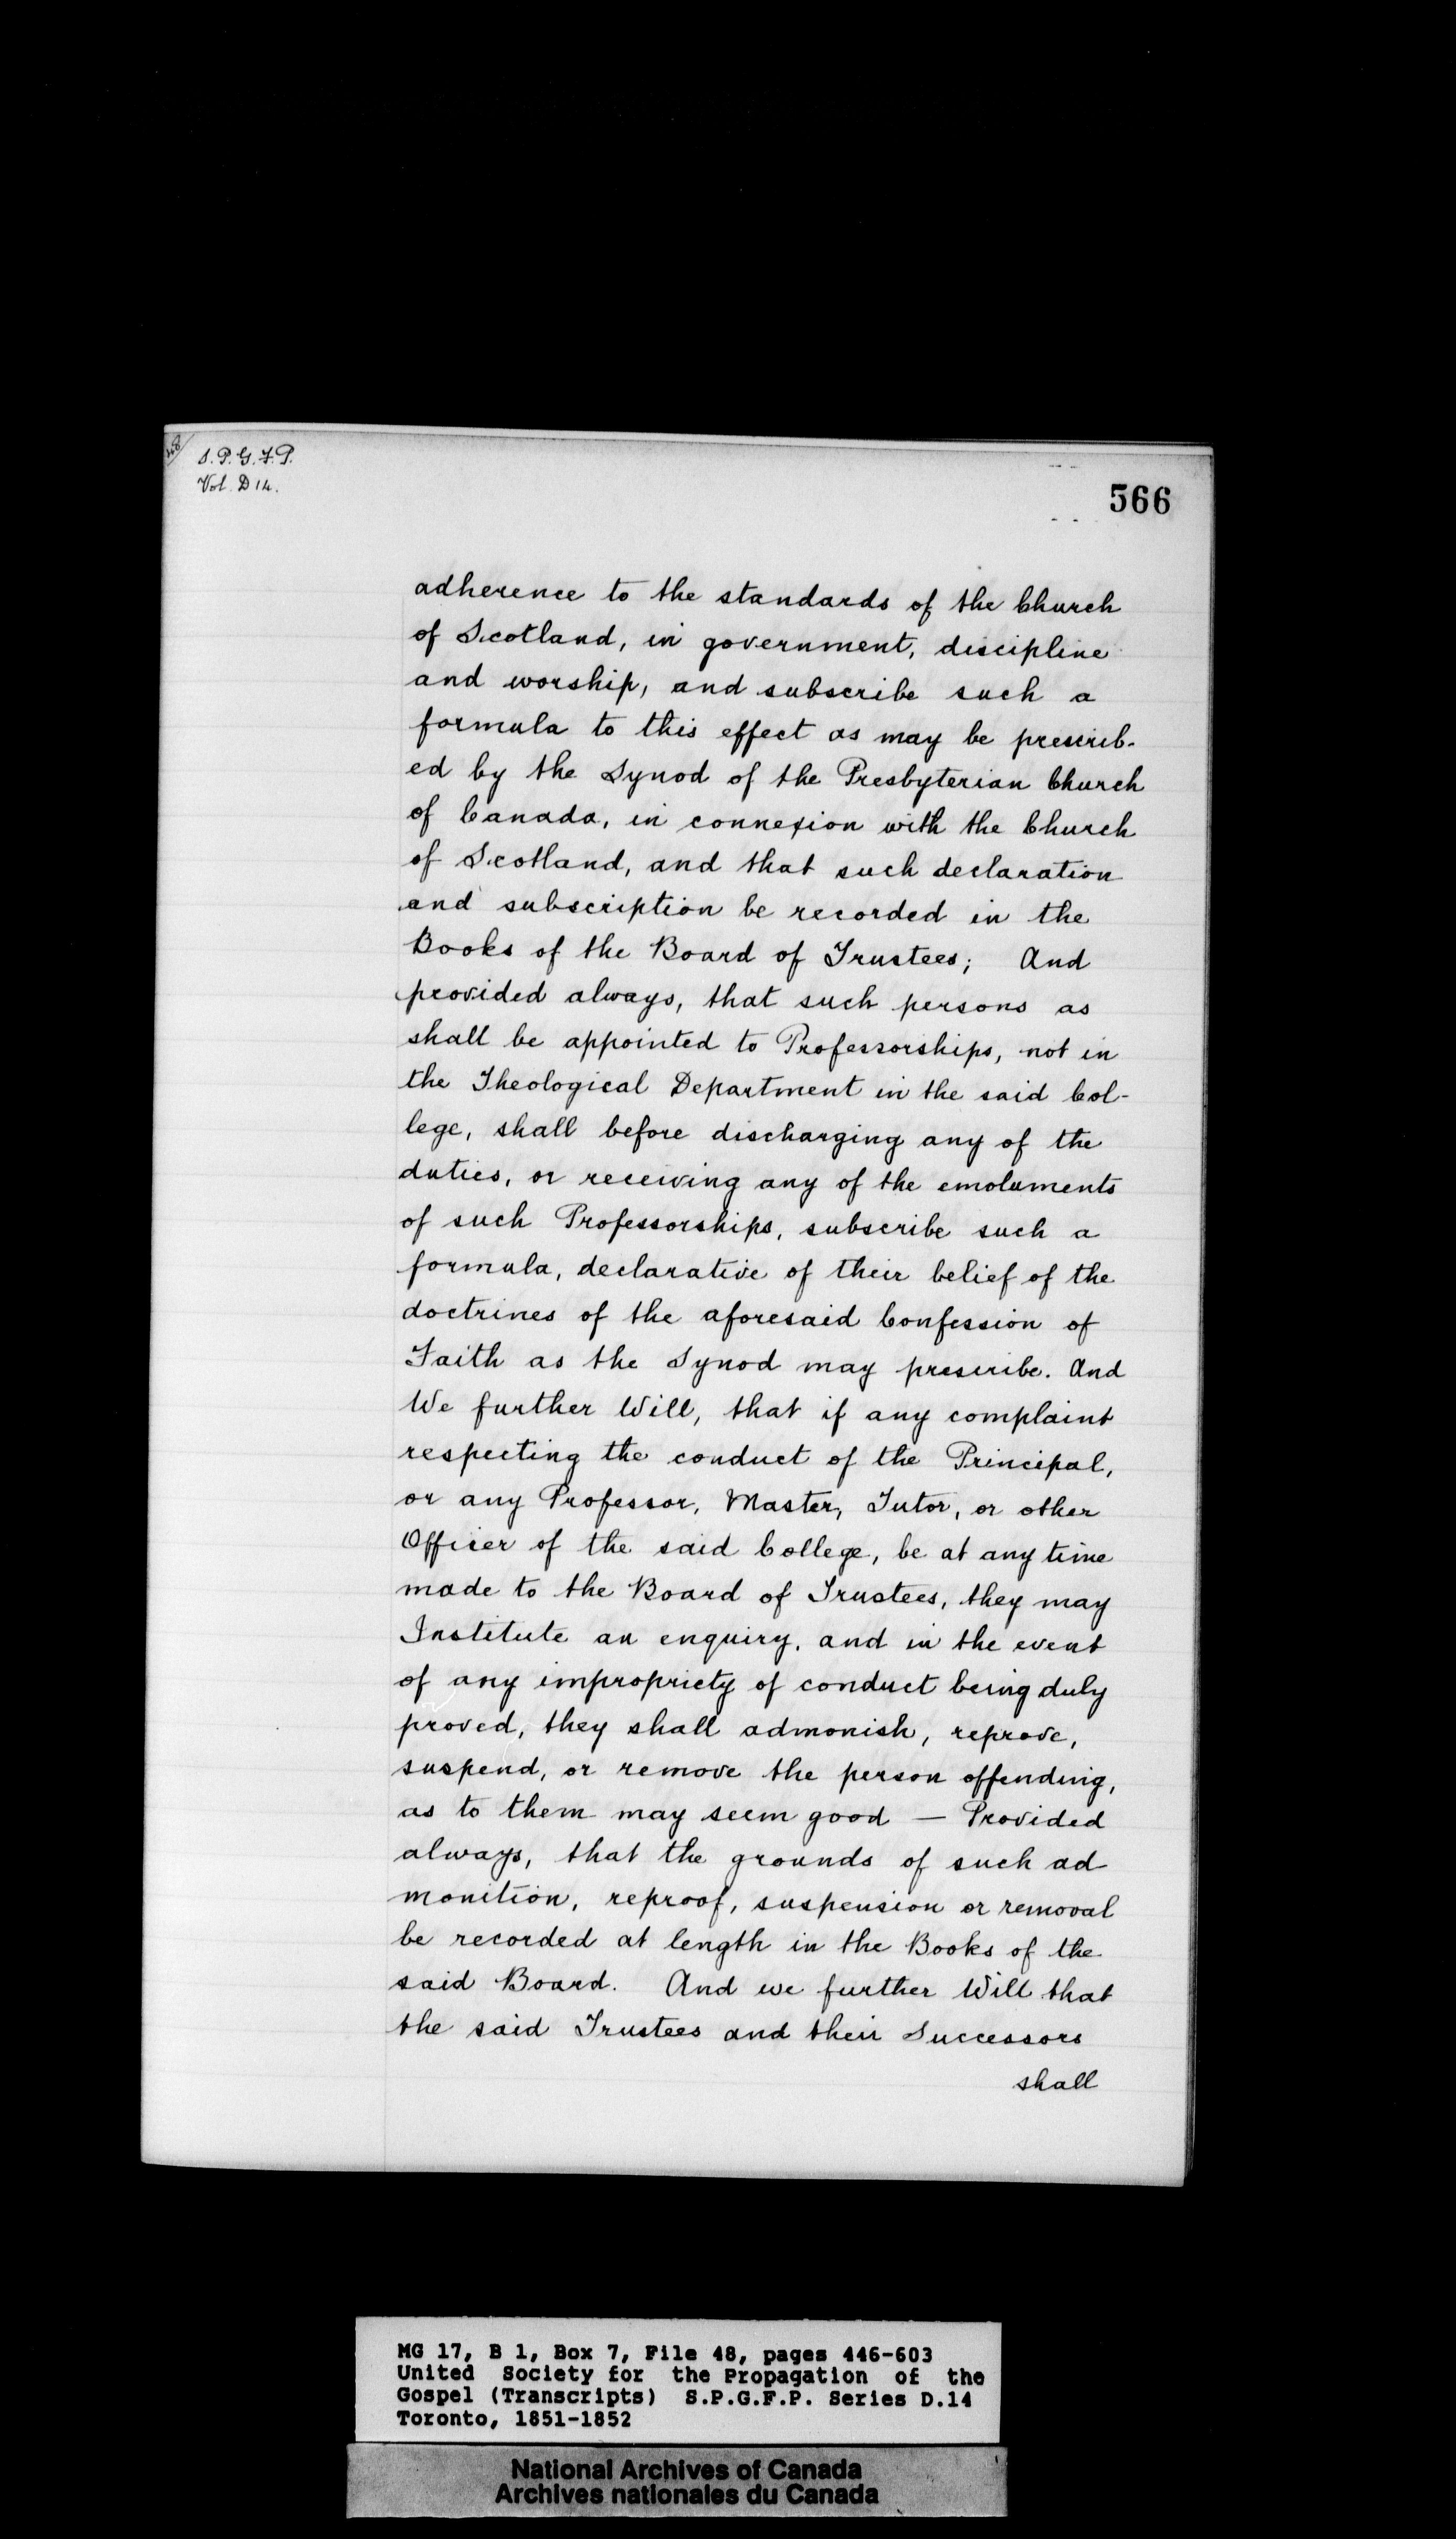 S.P.G.F.P.
Vol. D 14.
566
adherence to the standards of the Church
of Scotland, in government, discipline
and worship, and subscribe such a
formula to this effect as may be prescrib-
ed by the Synod of the Presbyterian Church
of Canada, in connexion with the Church
of Scotland, and that such declaration
and subscription be recorded in the
Books of the Board of Trustees; And
provided always, that such persons as
shall be appointed to Professorships, not in
the Theological Department in the said Col-
lege, shall before discharging any of the
duties, or receiving any of the emoluments
of such Professorships, subscribe such a
formula, declarative of their belief of the
doctrines of the aforesaid Confession of
Faith as the Synod may prescribe. And
We further Will, that if any complaint
respecting the conduct of the Principal,
or any Professor, Master, Tutor, or other
Officer of the said College, be at any time
made to the Board of Trustees, they may
Institute an enquiry, and in the event
of any impropriety of conduct being duly
proved, they shall admonish, reprove,
suspend, or remove the person offending,
as to them may seem good — Provided
always, that the grounds of such ad
monition, reproof, suspension or removal
be recorded at length in the Books of the
said Board. And we further Will that
the said Trustees and their Successors
shall
MG 17, B 1, Box 7, File 48, pages 446-603
United Society for the Propagation of the
Gospel (Transcripts) S.P.G.F.P. Series D.14
Toronto, 1851-1852
National Archives of Canada
Archives nationales du Canada